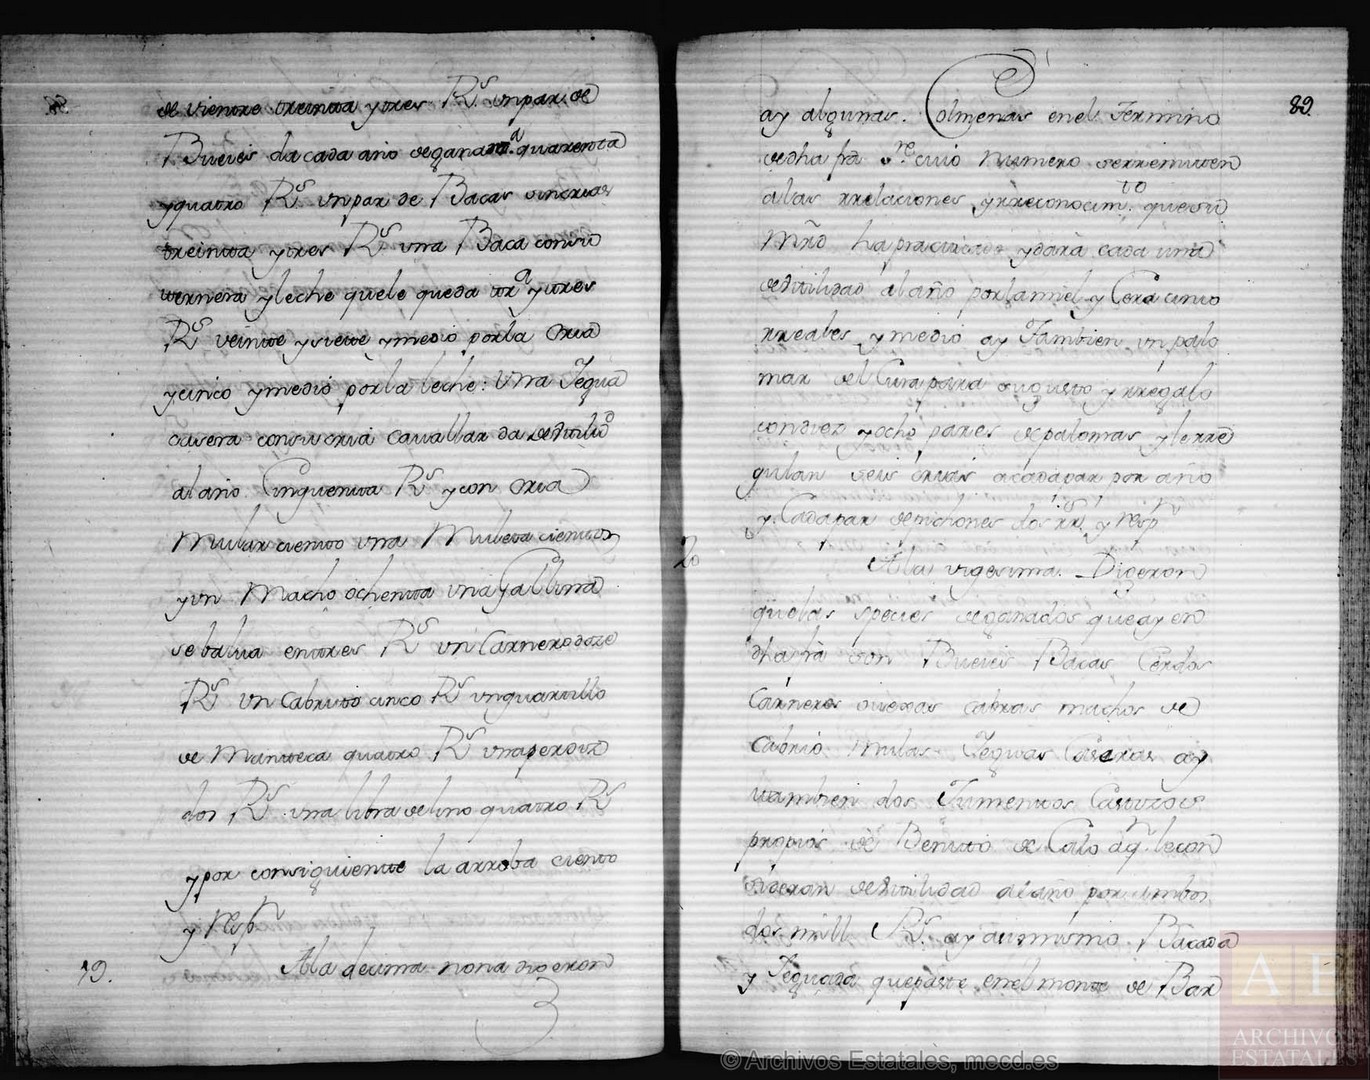 de vientre treinta y tres R.s un par de
Bueies da cada año de gana.a quarenta
y quatro R.s un par de Bacas sin crias
treinta y tres R.s una Baca con su
ternera y leche que le queda tr.a y tres
R.s veinte y siete y medio por la cria
y cinco y medio por la leche: Una Iegua
casera con su cria cavallar da de utilid
al año Cinquenta R.s y con cria
Mular ciento una Muleta ciento
y un Macho ochenta una Gallina
se balua en tres R.s un Carnero doze
R.s un Cabrito cinco R.s un quartillo
de Manteca quatro R.s una perdiz
dos R.s una libra de lino quatro R.s
y por consiguiente la arroba ciento
y resp.n
19. A la decima nona digeron
89.
ay algunas Colmenas en el Termino
de dha fra s.re cuio numero se rremiten
a las rrelaciones y rreconocim.to que su
Mrd ha practicado y dara cada una
de utilidad al año por la miel y Cera cinco
rreales y medio ay Tambien un palo
mar del Cura para su gusto y rregalo
con diez y ocho pares de palomas y le rre
gulan seis crias a cada par por año
y Cada par de pichones dos rr.s y resp.n
20 A la vigesima Digeron
que las species de ganados que ay en
dha fra son Bueies Bacas Cerdos
Carneros ovexas cabras machos de
Cabrio Mulas Ieguas Caseras ay
tambien dos Jumentos
propios de Benito de Calo a q.n le con
sideran de utilidad al año por ambos
dos mill R.s ay asimismo Bacada
y Ieguada que paste en el monte de Bar